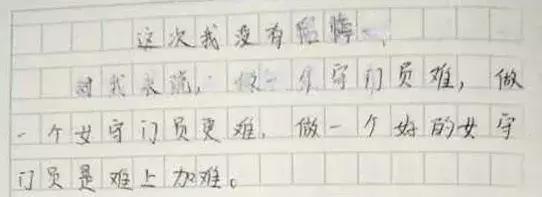 这次我没有陷阵
对我来说，做一名守门员难，做
一个女守门员更难，做一个好的女守
门员是难上加难。